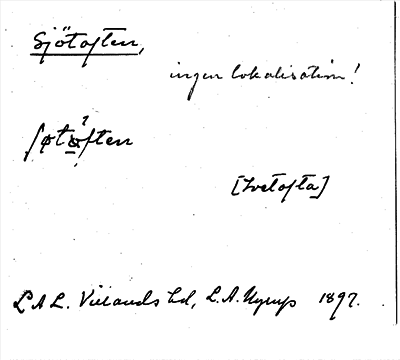 Sjötoften,
ingen lokalisation!
ʃøtoften
[Tvetofta]
LAL. Villands hd, L.A. Nyrup 1897.